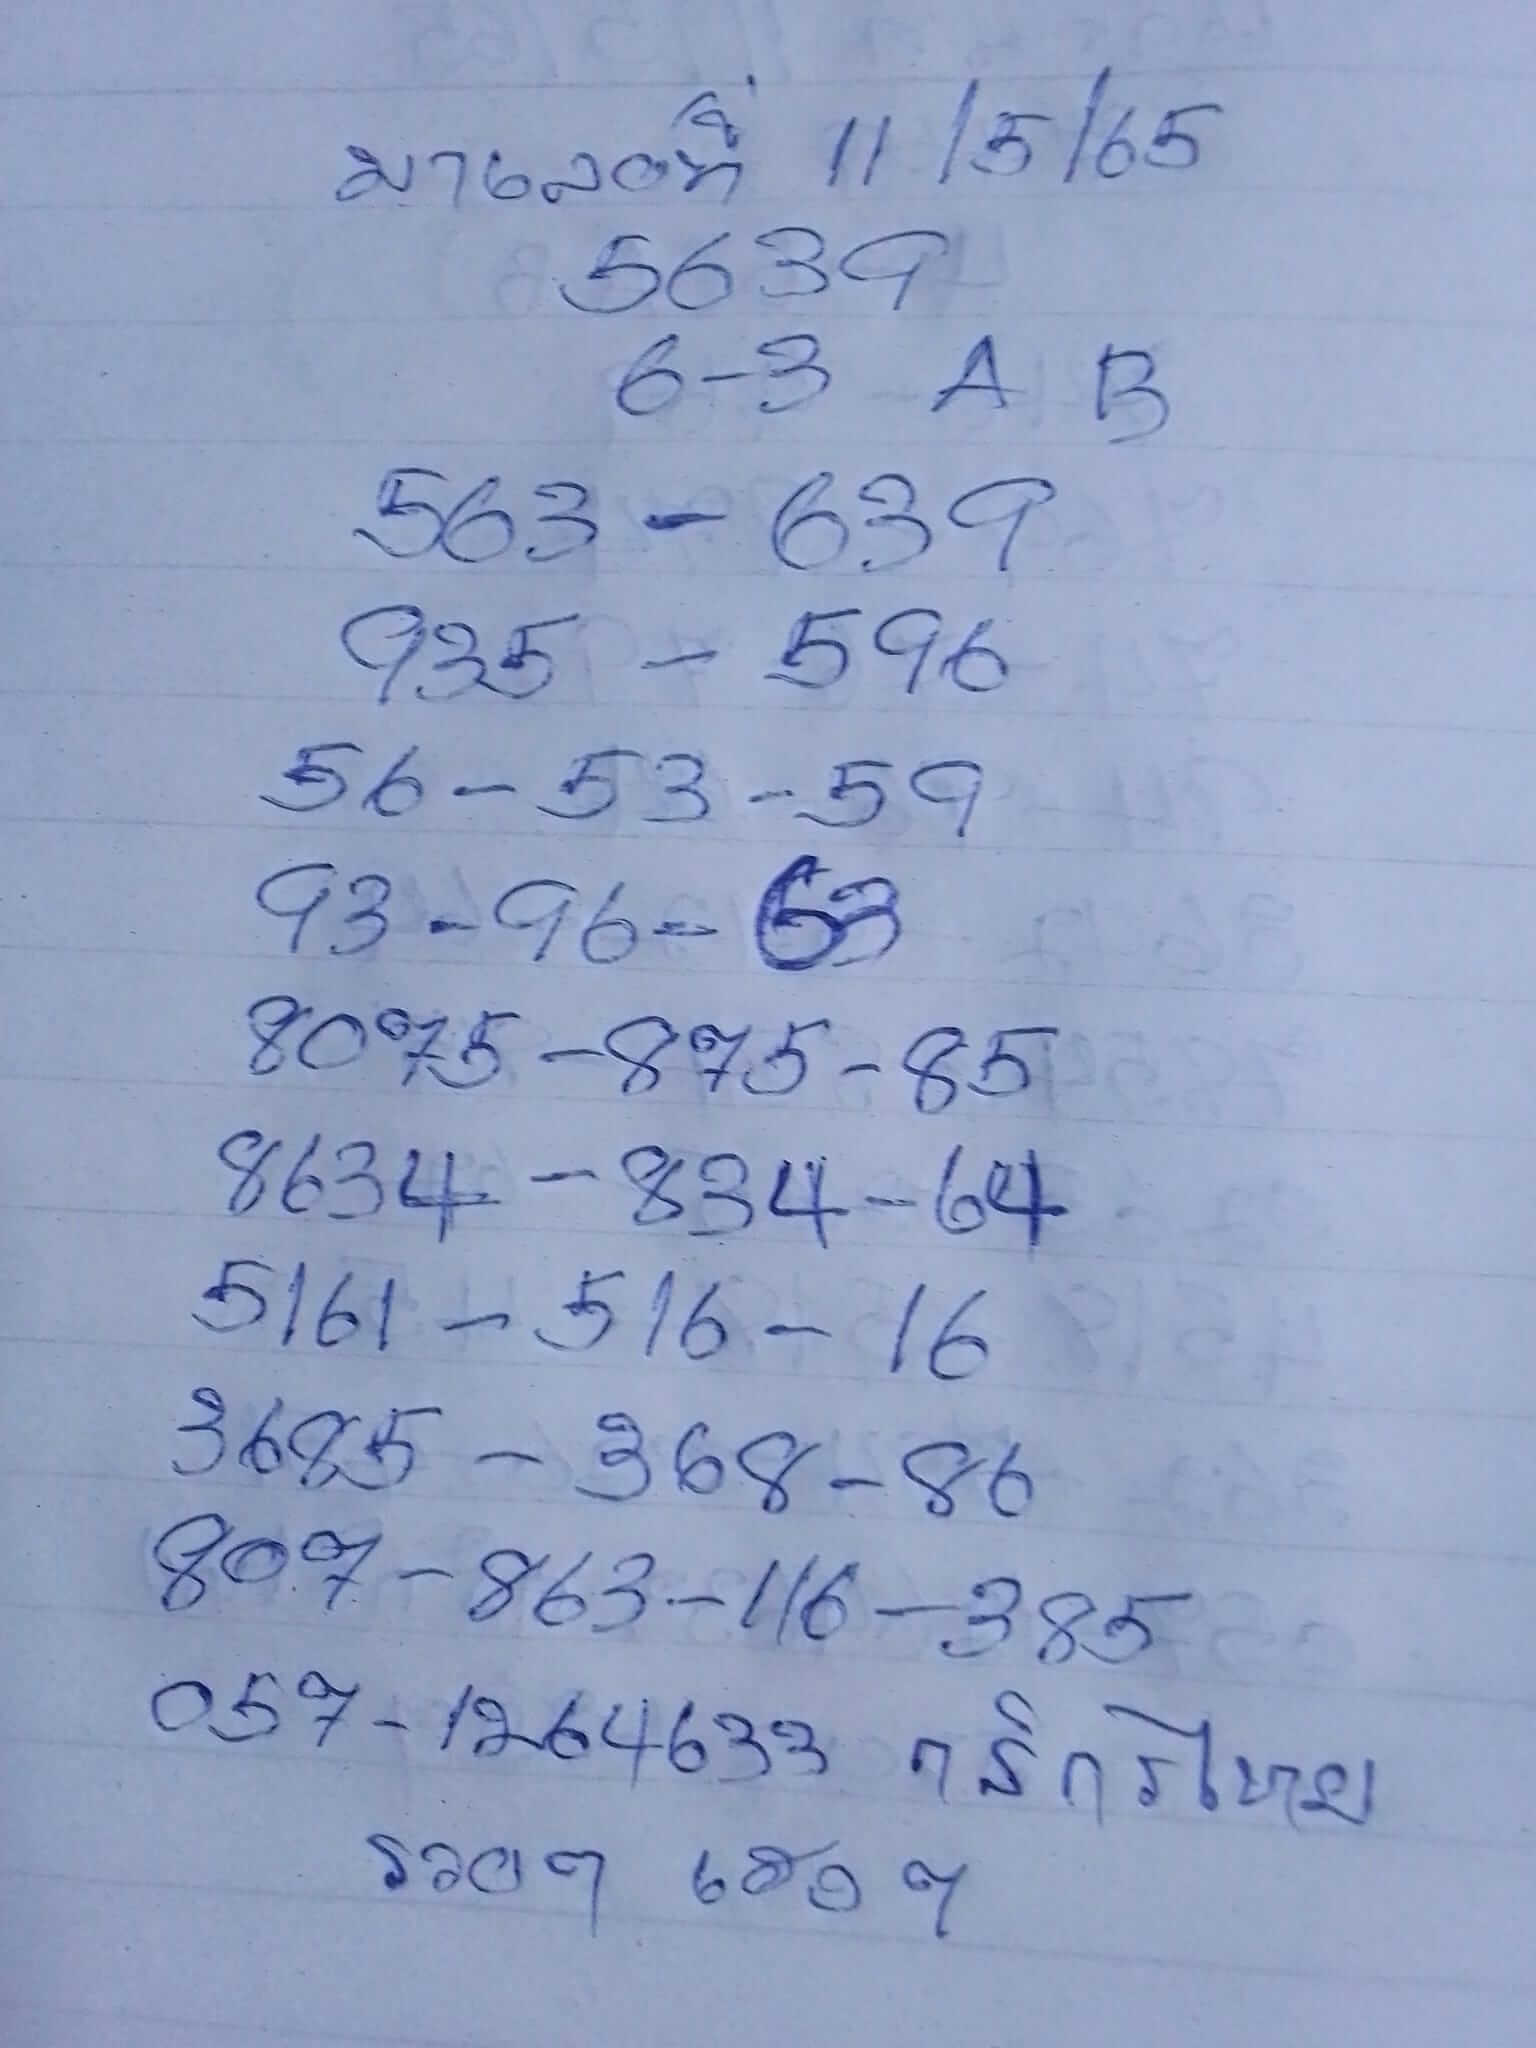 มาเลย์ที่ 11/5/65
5639
6-3 A B
563 - 639
935 - 596
56 - 53 - 59
93 - 96 - 63
8075 - 875 - 85
8634 - 834 - 64
5161 - 516 - 16
3685 - 368 - 86
807 - 863 - 116 - 385
057 - 1264633 กสิกรไทย
รวยๆ เฮงๆ